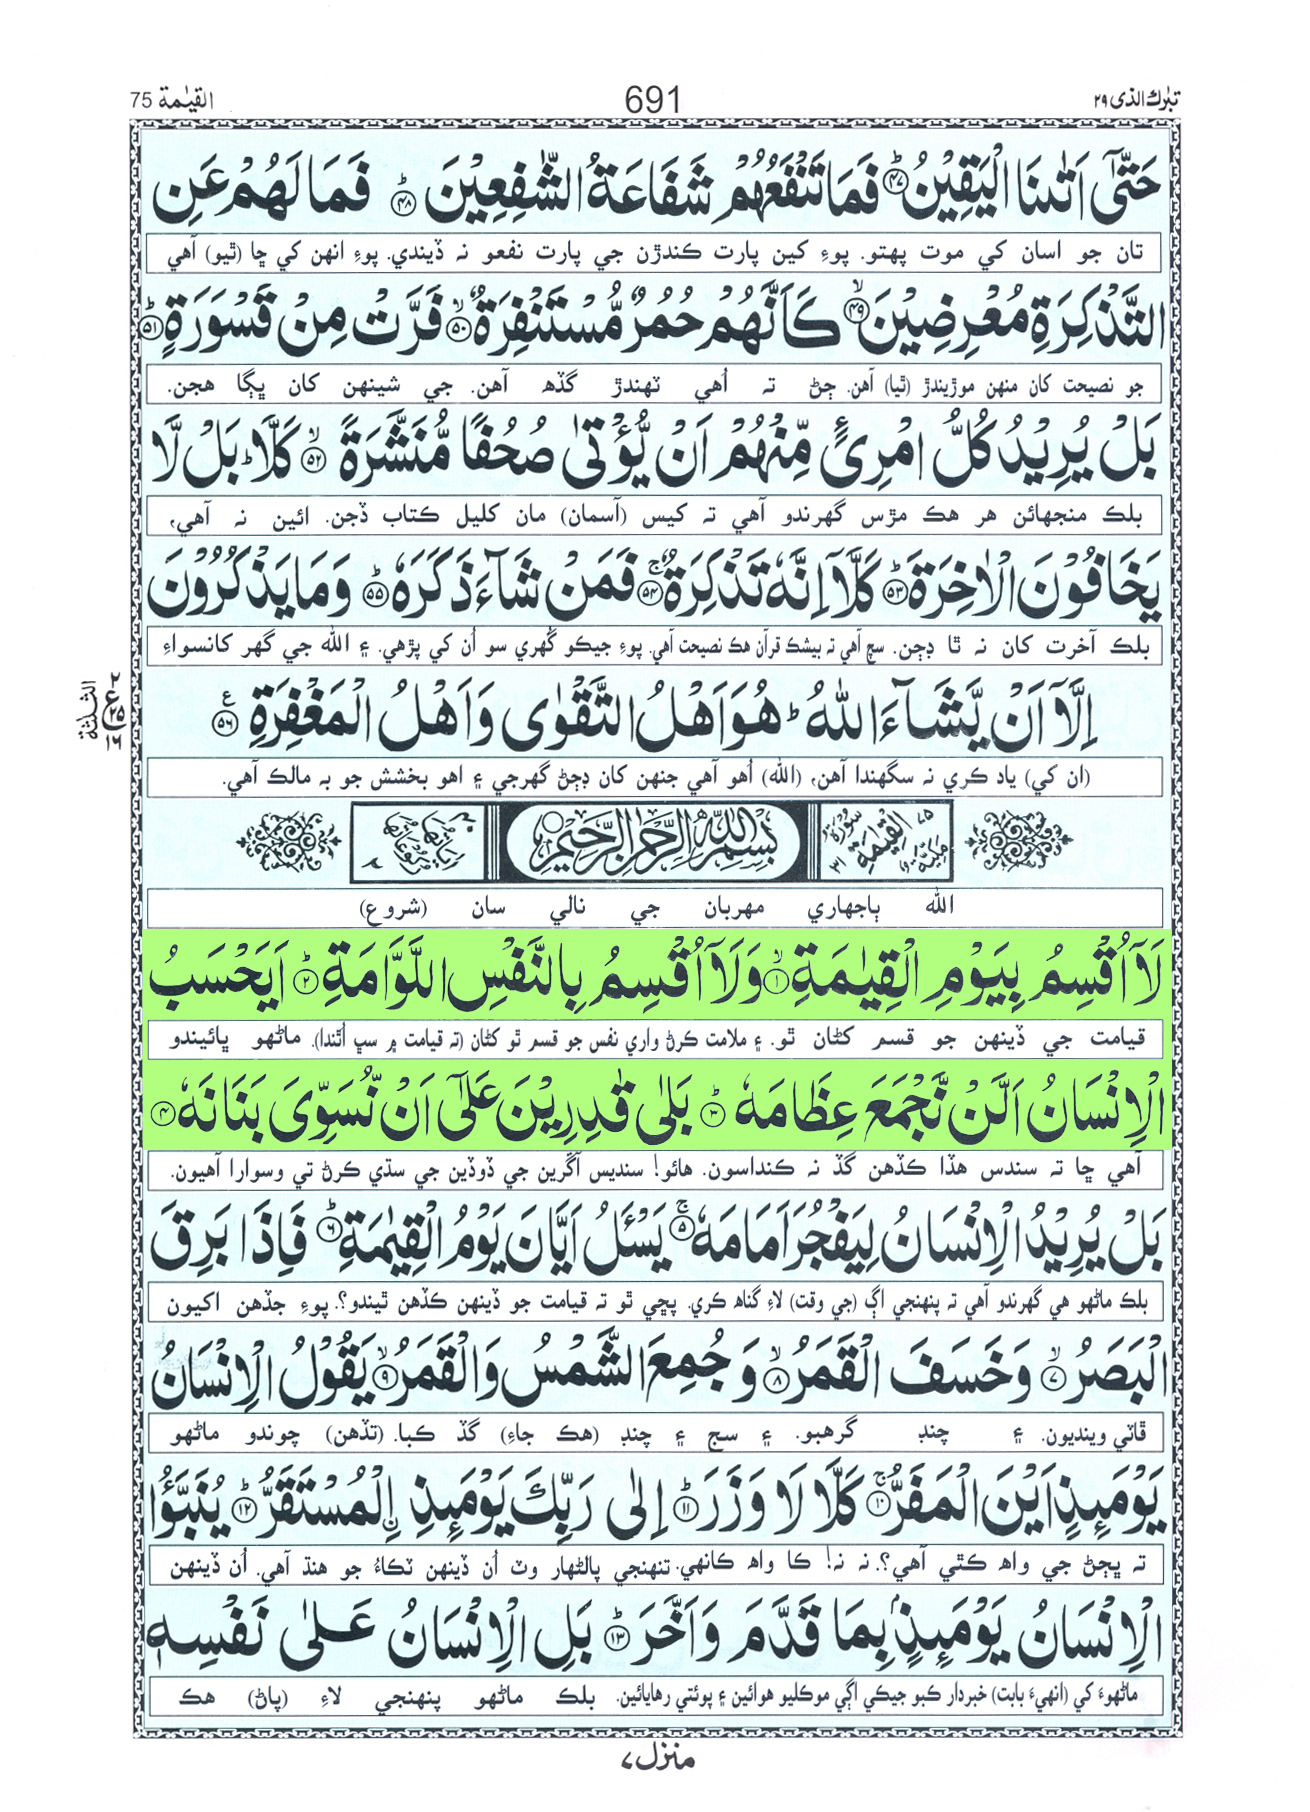 تبٰرك الذى ٢٩ 691 القيٰمة 75
حَتّٰٓى اَتٰىنَا الْيَقِيْنُ ؕ ﴿۴۷﴾ فَمَا تَنْفَعُهُمْ شَفَاعَةُ الشّٰفِعِيْنَ ؕ ﴿۴۸﴾ فَمَا لَهُمْ عَنِ
تان جو اسان کي موت پهتو. پوءِ کين پارت ڪندڙن جي پارت نفعو نہ ڏيندي. پوءِ انهن کي ڇا (ٿيو) آهي
التَّذْكِرَةِ مُعْرِضِيْنَ ۙ ﴿۴۹﴾ كَاَنَّهُمْ حُمُرٌ مُّسْتَنْفِرَةٌ ۙ ﴿۵۰﴾ فَرَّتْ مِنْ قَسْوَرَةٍ ؕ ﴿۵۱﴾
جو نصيحت کان منهن موڙيندڙ (ٿيا) آهن. ڄڻ تہ اُهي ٽهندڙ گڏهہ آهن. جي شينهن کان ڀڳا هجن.
بَلْ يُرِيْدُ كُلُّ امْرِئٍ مِّنْهُمْ اَنْ يُّؤْتٰى صُحُفًا مُّنَشَّرَةً ۙ ﴿۵۲﴾ كَلَّا ؕ بَلْ لَّا
بلڪ منجهائن هر هڪ مڙس گهرندو آهي تہ کيس (آسمان) مان کليل ڪتاب ڏجن. ائين نہ آهي،
يَخَافُوْنَ الْاٰخِرَةَ ؕ ﴿۵۳﴾ كَلَّاۤ اِنَّهٗ تَذْكِرَةٌ ۚ ﴿۵۴﴾ فَمَنْ شَآءَ ذَكَرَهٗ ؕ ﴿۵۵﴾ وَمَا يَذْكُرُوْنَ
بلڪ آخرت کان نہ ٿا ڊڄن. سچ آهي تہ بيشڪ قرآن هڪ نصيحت آهي. پوءِ جيڪو گُهري سو اُن کي پڙهي. ۽ الله جي گهر کانسواءِ
اِلَّاۤ اَنْ يَّشَآءَ اللّٰهُ ؕ هُوَ اَهْلُ التَّقْوٰى وَاَهْلُ الْمَغْفِرَةِ ﴿۵۶﴾ ع
الثلثة ۲ ع ۲۵ ۱۶
(ان کي) ياد ڪري نہ سگهندا آهن، (الله) اُهو آهي جنهن کان ڊڄڻ گهرجي ۽ اهو بخشش جو بہ مالڪ آهي.
۷۵ سورة القيٰمة مكية ۳۱ بسم الله الرحمٰن الرحيم اياتها ۴۰ ركوعاتها ۲
الله ٻاجهاري مهربان جي نالي سان (شروع)
لَاۤ اُقْسِمُ بِيَوْمِ الْقِيٰمَةِ ۙ ﴿۱﴾ وَلَاۤ اُقْسِمُ بِالنَّفْسِ اللَّوَّامَةِ ؕ ﴿۲﴾ اَيَحْسَبُ
قيامت جي ڏينهن جو قسم کڻان ٿو. ۽ ملامت ڪرڻ واري نفس جو قسم ٿو کڻان (تہ قيامت ۾ سڀ اُٿندا). ماڻهو ڀائيندو
الْاِنْسَانُ اَلَّنْ نَّجْمَعَ عِظَامَهٗ ؕ ﴿۳﴾ بَلٰى قٰدِرِيْنَ عَلٰٓى اَنْ نُّسَوِّىَ بَنَانَهٗ ﴿۴﴾
آهي ڇا تہ سندس هڏا ڪڏهن گڏ نہ ڪنداسون. هائو! سنديس آڱرين جي ڏوڏين جي سڌي ڪرڻ تي وسوارا آهيون.
بَلْ يُرِيْدُ الْاِنْسَانُ لِيَفْجُرَ اَمَامَهٗ ۚ ﴿۵﴾ يَسْـَٔلُ اَيَّانَ يَوْمُ الْقِيٰمَةِ ؕ ﴿۶﴾ فَاِذَا بَرِقَ
بلڪ ماڻهو هي گهرندو آهي تہ پنهنجي اڳ (جي وقت) لاءِ گناه ڪري. پڇي ٿو تہ قيامت جو ڏينهن ڪڏهن ٿيندو؟. پوءِ جڏهن اکيون
الْبَصَرُ ۙ ﴿۷﴾ وَخَسَفَ الْقَمَرُ ۙ ﴿۸﴾ وَجُمِعَ الشَّمْسُ وَالْقَمَرُ ۙ ﴿۹﴾ يَقُوْلُ الْاِنْسَانُ
ڦاٽي وينديون. ۽ چنڊ گرهبو. ۽ سج ۽ چنڊ (هڪ جاءِ) گڏ ڪبا. (تڏهن) چوندو ماڻهو
يَوْمَىِٕذٍ اَيْنَ الْمَفَرُّ ۚ ﴿۱۰﴾ كَلَّا لَا وَزَرَ ؕ ﴿۱۱﴾ اِلٰى رَبِّكَ يَوْمَىِٕذِ ۨالْمُسْتَقَرُّ ؕ ﴿۱۲﴾ يُنَبَّؤُا
تہ ڀڄڻ جي واه ڪٿي آهي؟. نہ نہ! ڪا واه ڪانهي. تنهنجي پالڻهار وٽ اُن ڏينهن ٽڪاءُ جو هنڌ آهي. اُن ڏينهن
الْاِنْسَانُ يَوْمَىِٕذٍۭ بِمَا قَدَّمَ وَاَخَّرَ ؕ ﴿۱۳﴾ بَلِ الْاِنْسَانُ عَلٰى نَفْسِهٖ
ماڻهوءَ کي (انهيءَ بابت) خبردار ڪبو جيڪي اڳي موڪليو هوائين ۽ پوئتي رهايائين. بلڪ ماڻهو پنهنجي لاءِ (پاڻ) هڪ
منزل ۷